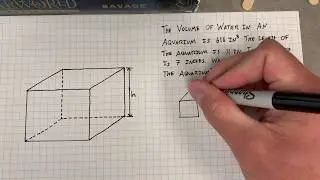 SAVAGE
THE VOLUME OF WATER IN AN
AQUARIUM IS 616 IN³ THE LENGTH OF
THE AQUARIUM IS 11 IN
IS 7 INCHES.
THE AQUARIUM
h